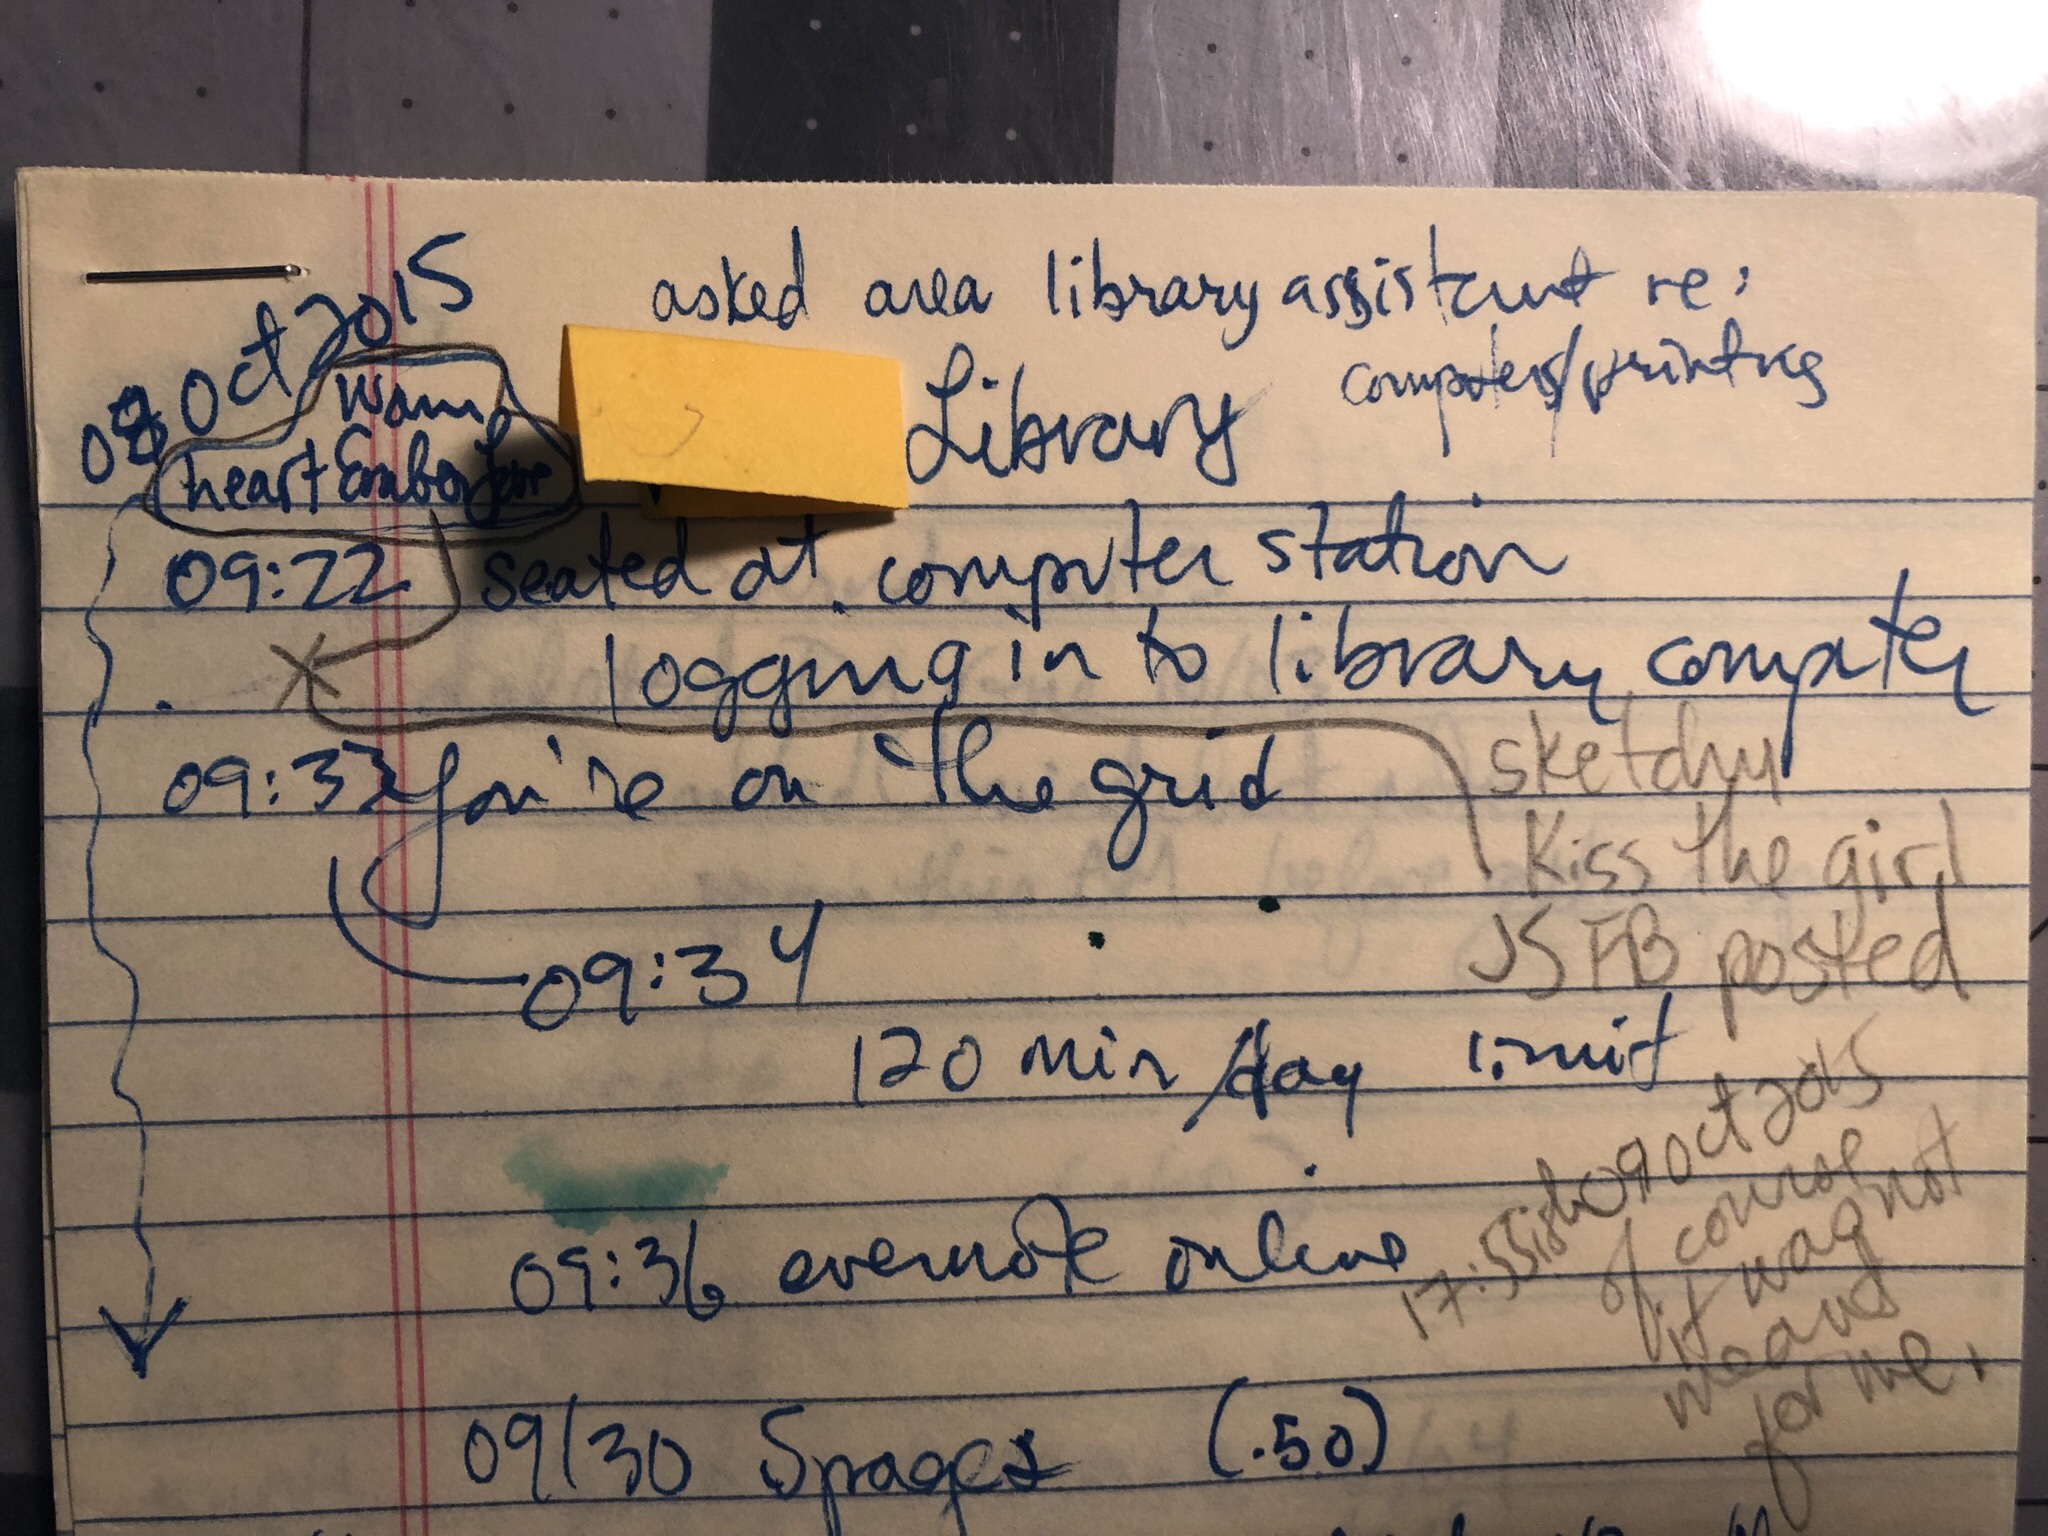 08 Oct 2015
asked area library assistant re:
computers/printing
Warm
heart Ember Love
Library
09:22 seated at computer station
logging in to library computer
09:33 you're on the grid
sketchy
Kiss the girl
JS FB posted
09:34
120 min/day limit
17:55ish 09 Oct 2015
of course
it was not
meant
for me.
09:36 evernote online
09/30 5 pages (.50)